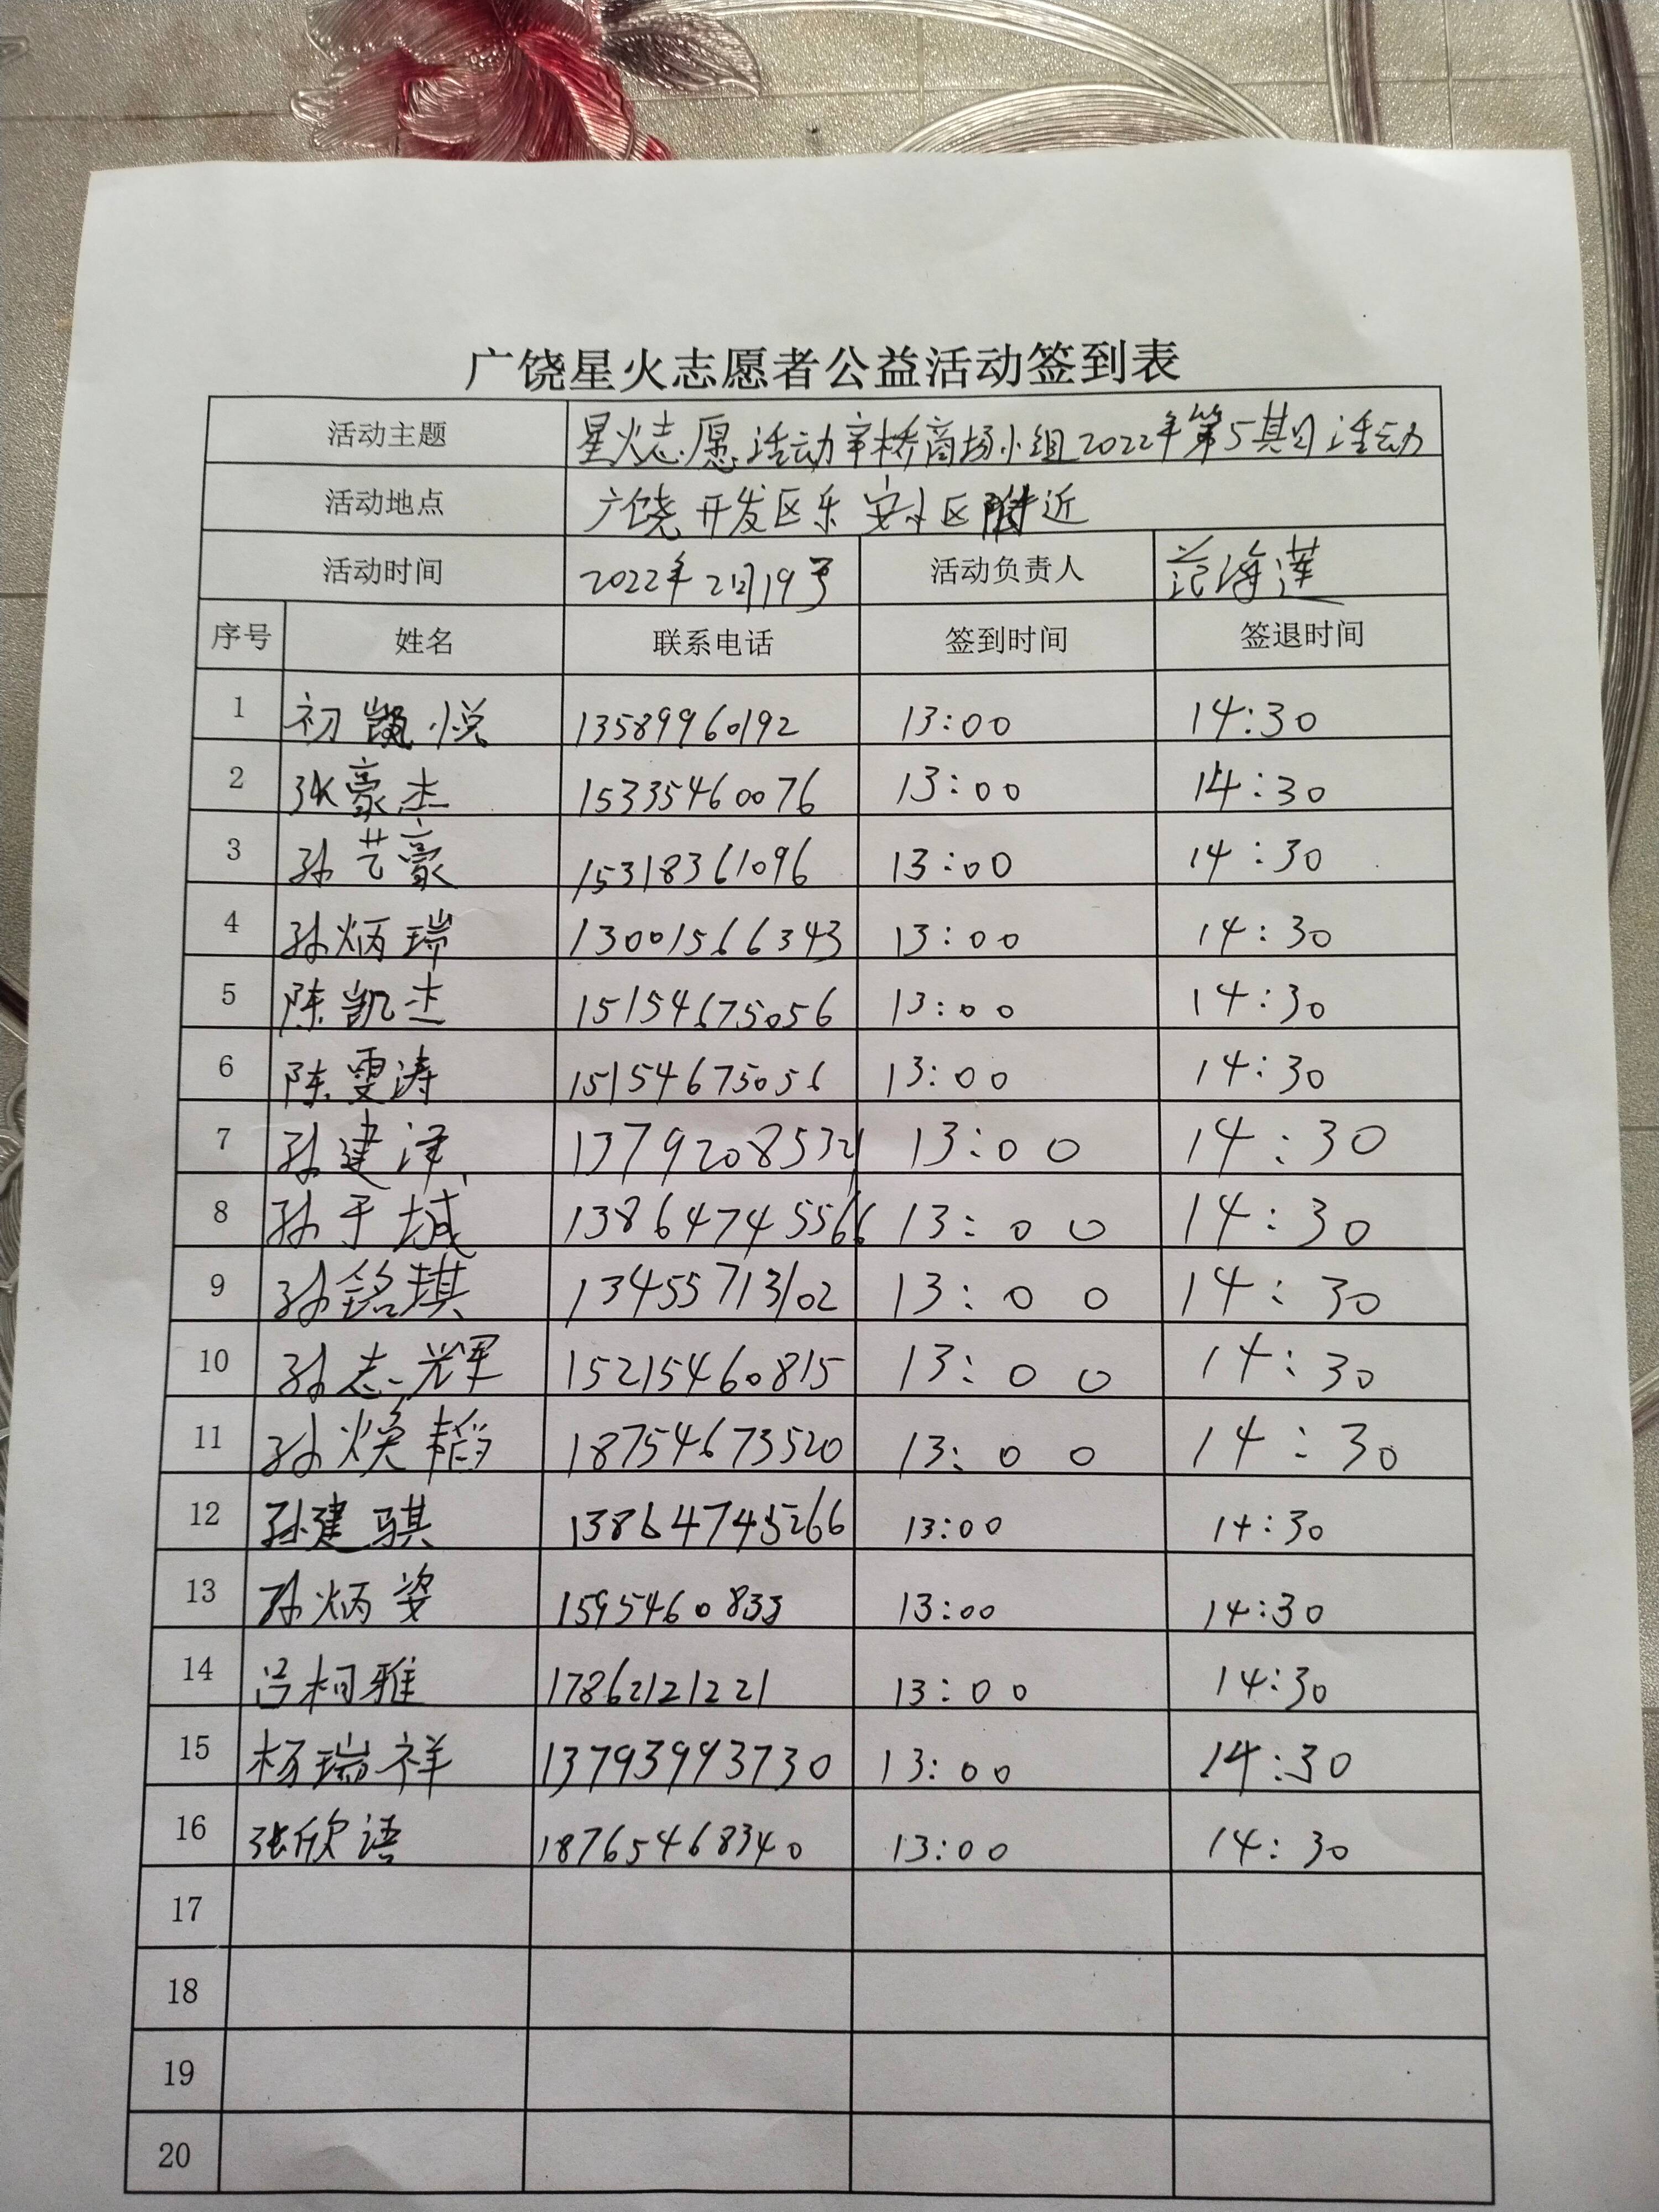 广饶星火志愿者公益活动签到表
活动主题 星火志愿活动辛桥商场小组2022年第5期活动
活动地点 广饶开发区乐安小区附近
活动时间 2022年2月19号 活动负责人 范海莲
序号 姓名 联系电话 签到时间 签退时间
1 初凯悦 13589960192 13:00 14:30
2 张豪杰 15335460076 13:00 14:30
3 孙艺豪 15318361096 13:00 14:30
4 孙炳瑞 13001566343 13:00 14:30
5 陈凯杰 15154675056 13:00 14:30
6 陈雯涛 15154675056 13:00 14:30
7 孙建泽 13792085321 13:00 14:30
8 孙于城 13864745566 13:00 14:30
9 孙铭琪 13455713102 13:00 14:30
10 孙志辉 15215460815 13:00 14:30
11 孙焕韬 18754673520 13:00 14:30
12 孙建骐 13864745266 13:00 14:30
13 孙炳姿 1595460833 13:00 14:30
14 吕柯雅 17862121221 13:00 14:30
15 杨瑞祥 13793993730 13:00 14:30
16 张欣语 18765468340 13:00 14:30
17
18
19
20